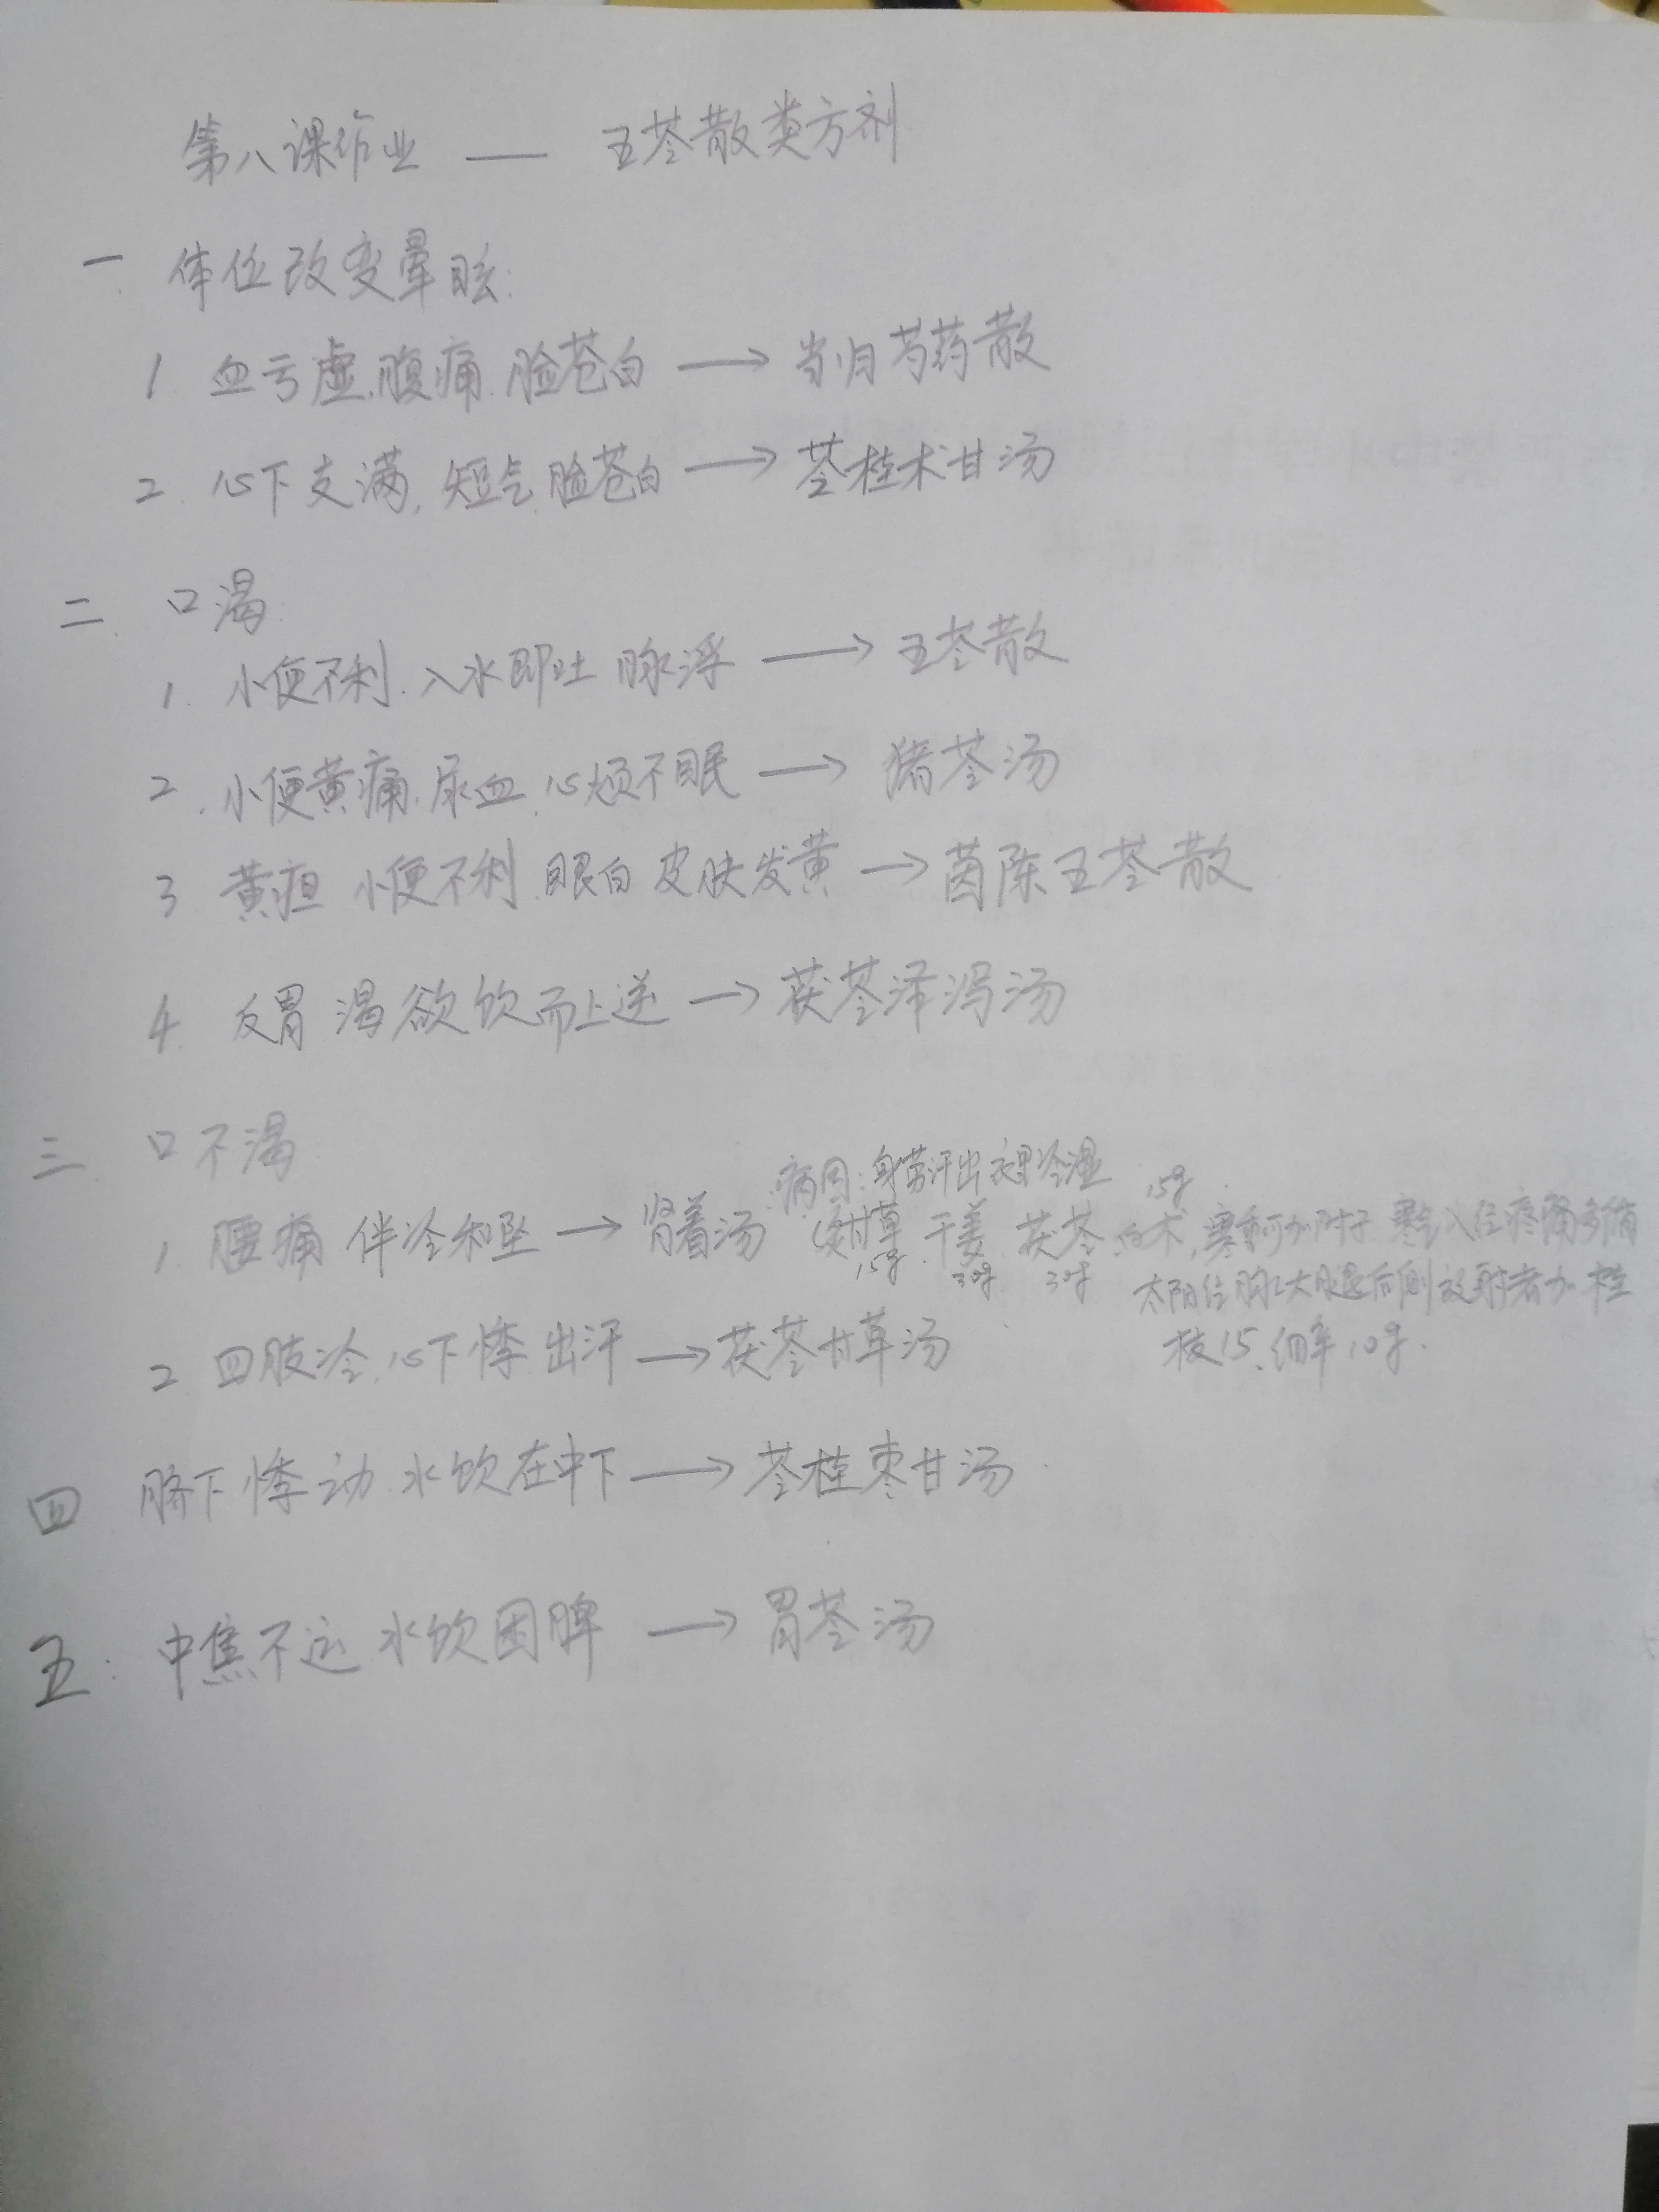 第八课作业 —— 五苓散类方剂
一 体位改变晕眩:
1 血亏虚.腹痛.脸苍白 → 当归芍药散
2. 心下支满,短气.脸苍白 → 苓桂术甘汤
二. 口渴:
1. 小便不利.入水即吐 脉浮 → 五苓散
2. 小便黄痛.尿血.心烦不眠 → 猪苓汤
3 黄疸 小便不利.眼白皮肤发黄 → 茵陈五苓散
4. 反胃 渴欲饮而上逆 → 茯苓泽泻汤
三 口不渴
病因:身劳汗出衣里冷湿
1. 腰痛 伴冷和坠 → 肾着汤 (炙甘草15g 干姜30g 茯苓30g 白术15g,寒重可加附子 寒气入经疼痛多循
太阳经 大腿后侧放射者加桂
枝15.细辛10g.
2 四肢冷.心下悸 出汗 → 茯苓甘草汤
四 脐下悸动 水饮在中下 → 苓桂枣甘汤
五: 中焦不运 水饮困脾 → 胃苓汤